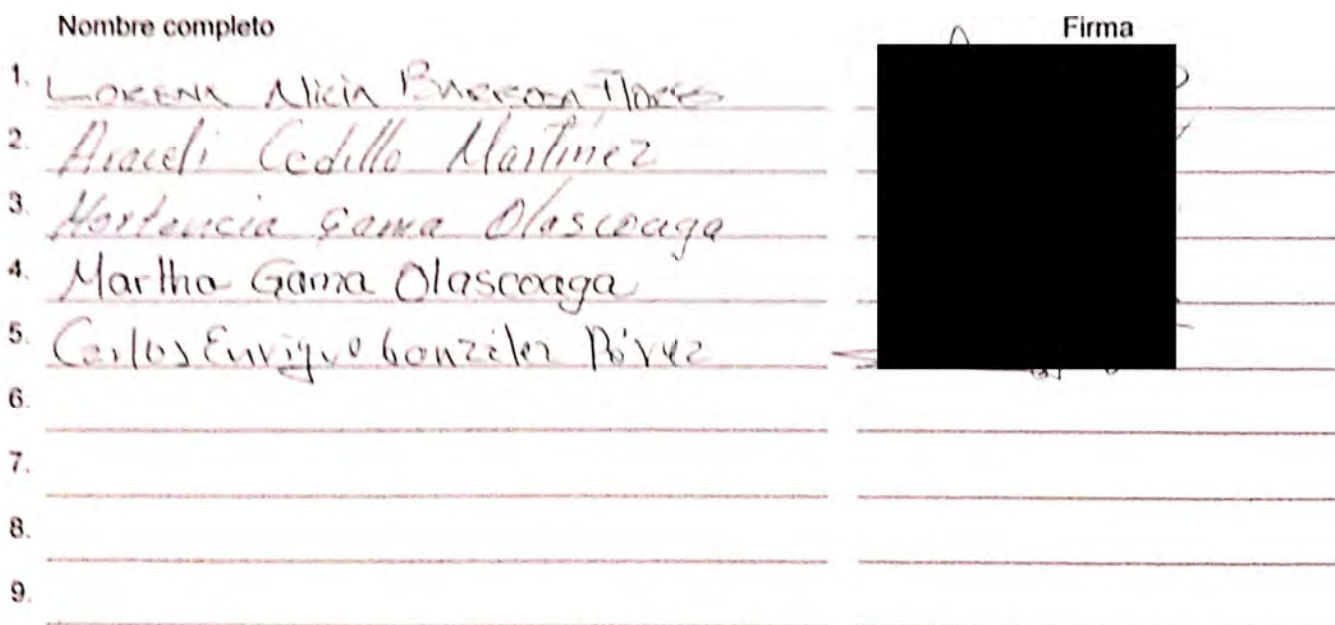 Nombre completo Firma
1. LORENA Alicia Barrosa Flores
2. Araceli Cedillo Martínez
3. Hortencia Gama Olascoaga
4. Martha Gama Olascoaga
5. Carlos Enrique González Pérez
6.
7.
8.
9.